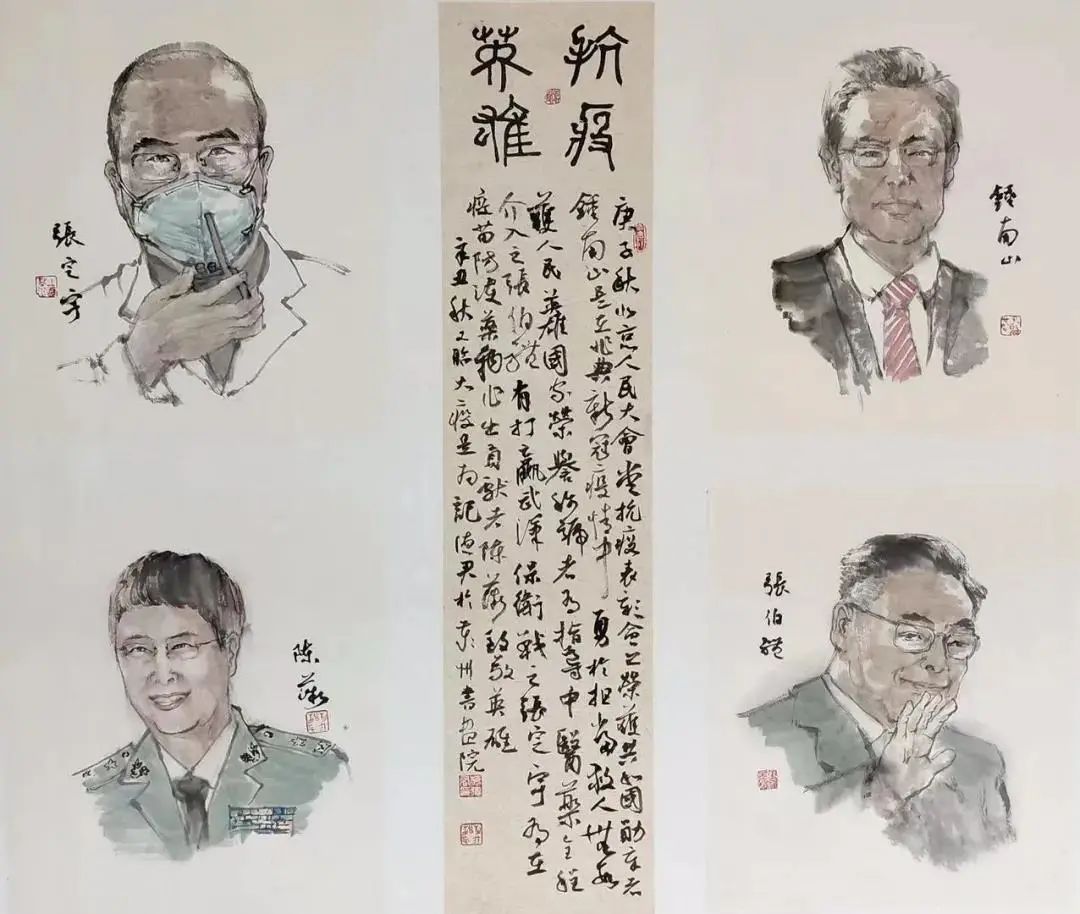 抗疫
英雄
庚子秋北京人民大會堂抗疫表彰会上榮獲共和國勛章者
鍾南山是在非典新冠疫情中勇於担當救人無数
獲人民英雄國家榮譽称號者为指导中醫藥全程
介入之張伯礼有打贏武漢保衛戰之張定宇为在
疫苗防護藥物作出貢献者陈薇致敬英雄
辛丑秋又臨大疫是为記 於 州書画院
張定宇
鍾南山
陈薇
張伯礼